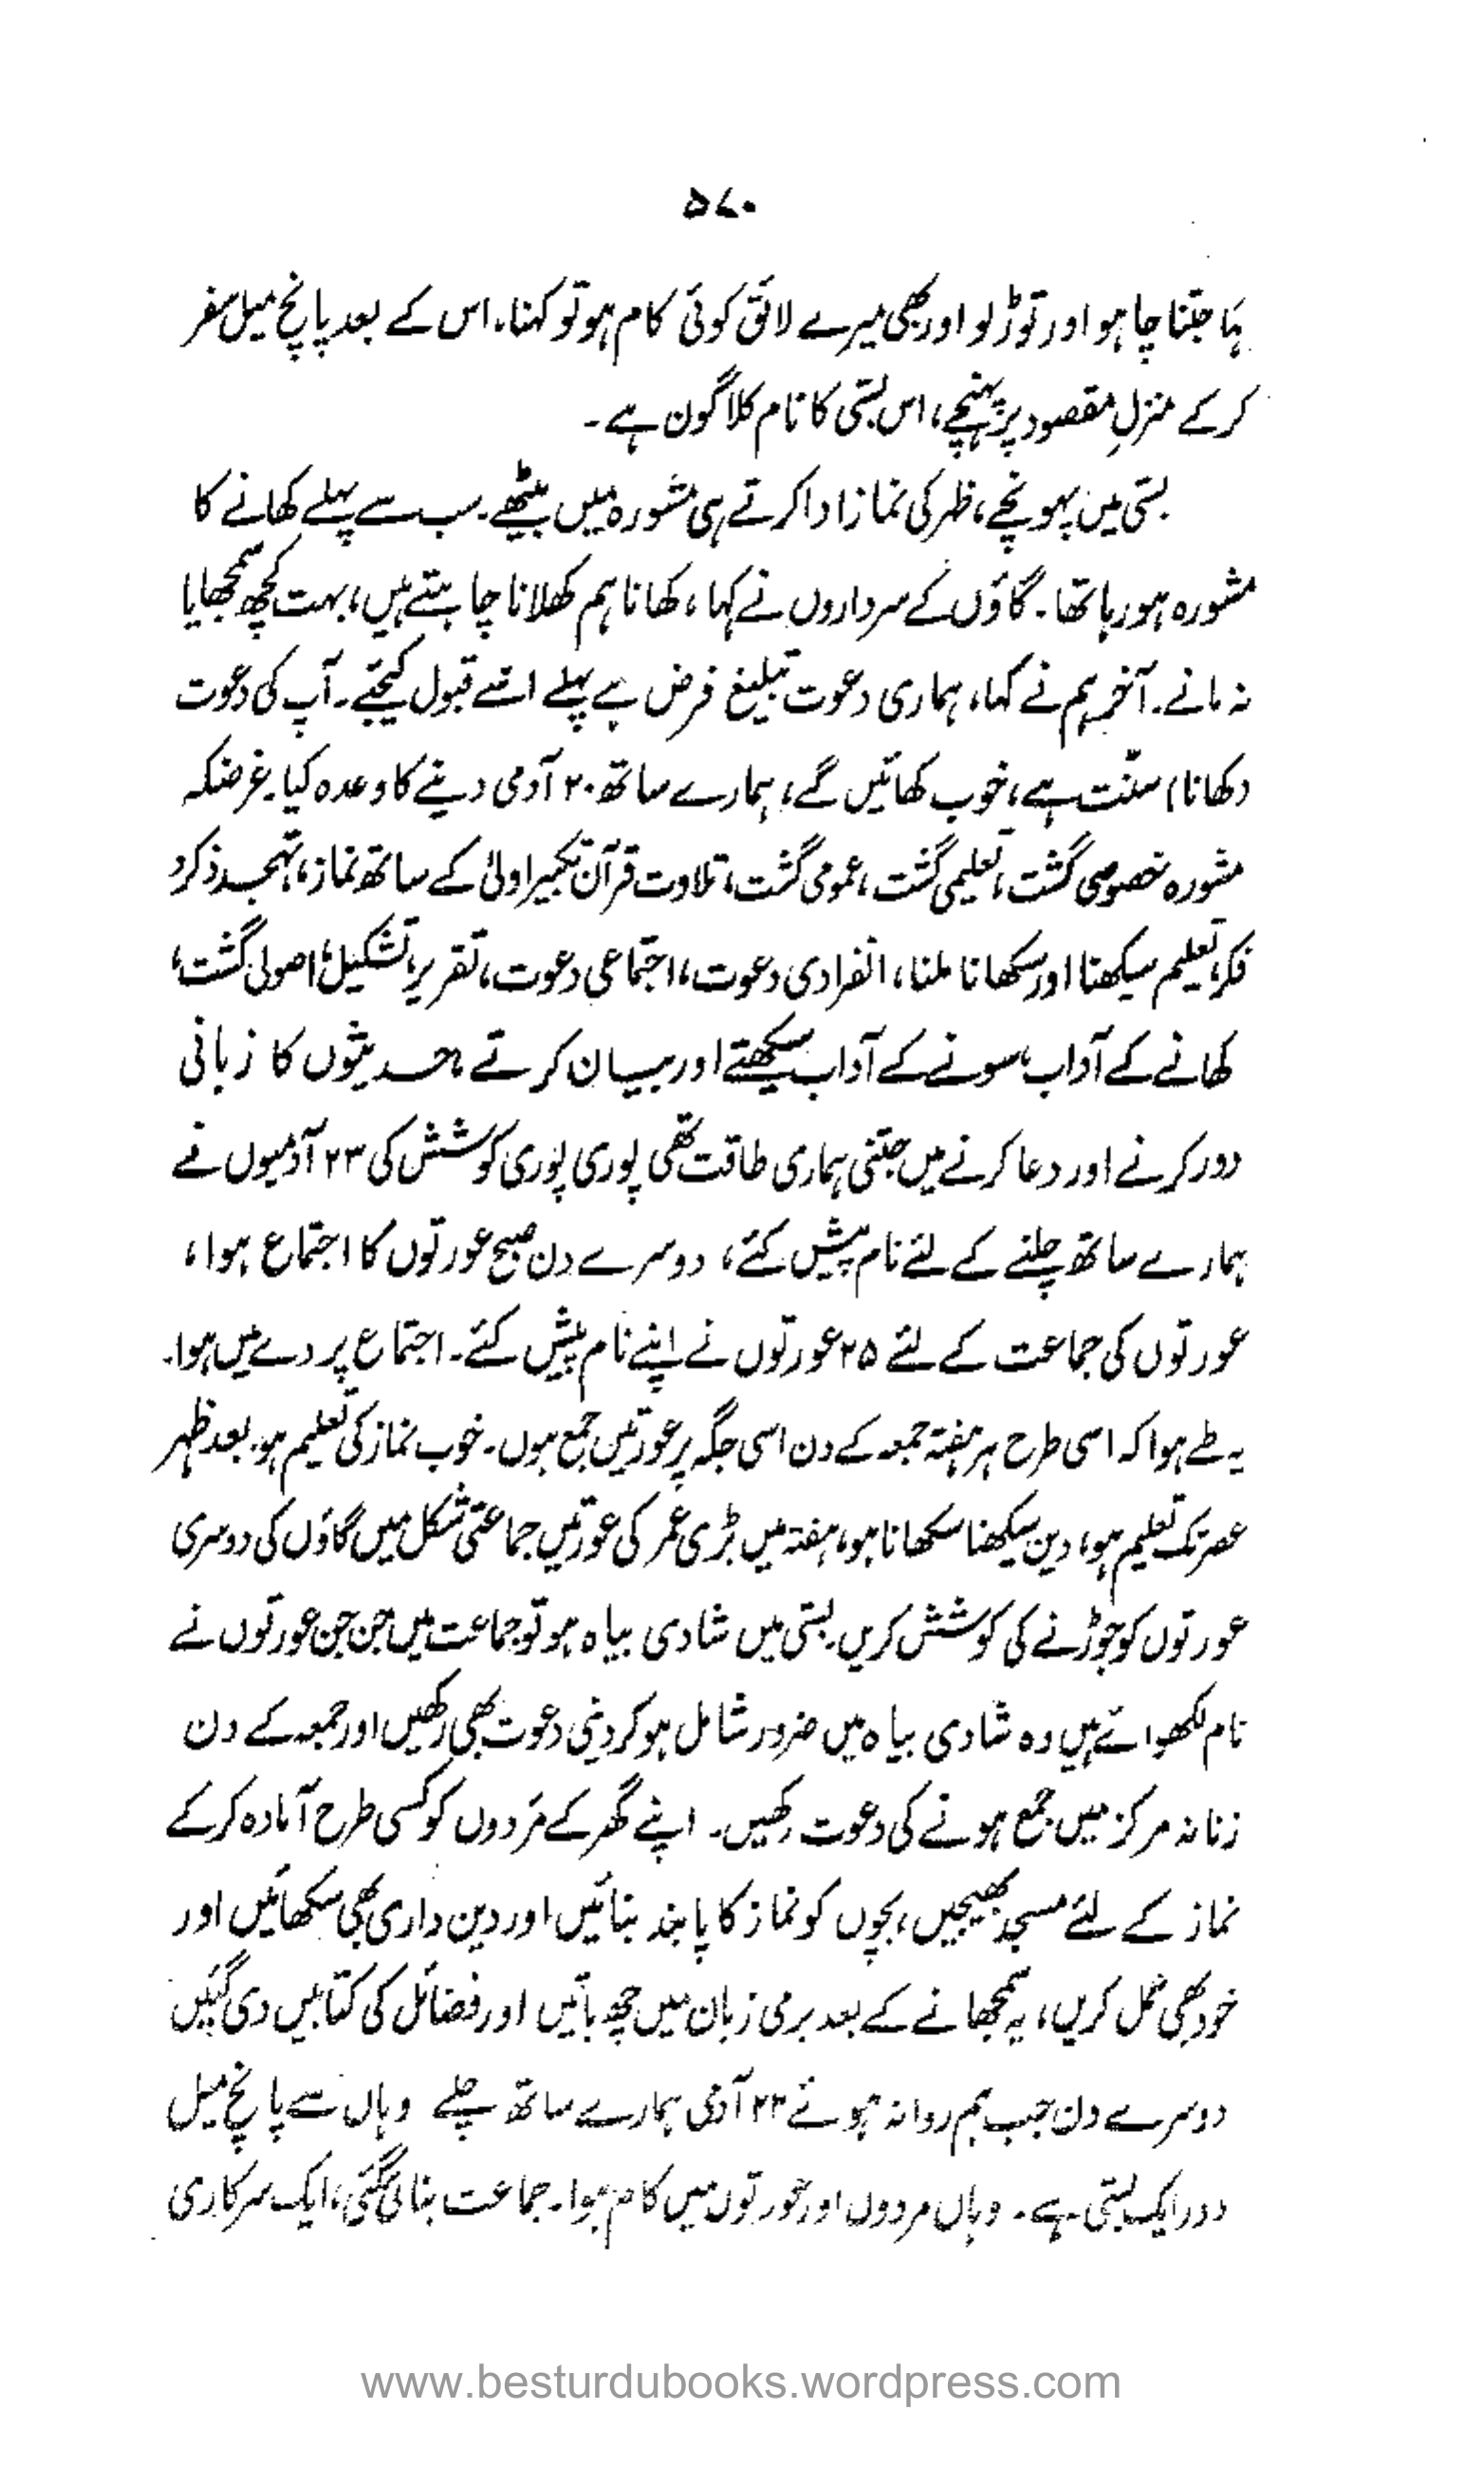 ۵۷۰
ہا جتنا چاہو اور توڑ لو اور بھی میرے لائق کوئی کام ہو تو کہنا۔ اس کے بعد پانچ میل سفر
کر کے منزلِ مقصود پر پہنچے، اس بستی کا نام کلاگون ہے۔
بستی میں پہونچے، ظہر کی نماز ادا کرتے ہی مشورہ میں بیٹھے۔ سب سے پہلے کھانے کا
مشورہ ہو رہا تھا۔ گاؤں کے سرداروں نے کہا، کھانا ہم کھلانا چاہتے ہیں، بہت کچھ سمجھایا
نہ مانے۔ آخر ہم نے کہا، ہماری دعوت تبلیغ فرض ہے پہلے اسے قبول کیجئے۔ آپ کی دعوت
(کھانا) سنت ہے، خوب کھائیں گے، ہمارے ساتھ ۲۰ آدمی دینے کا وعدہ کیا۔ غرضکہ
مشورہ خصوصی گشت، تعلیمی گشت، عمومی گشت، تلاوت قرآن تکبیر اولیٰ کے ساتھ نماز، تہجد ذکر و
فکر، تعلیم سیکھنا اور سکھانا ملنا، انفرادی دعوت، اجتماعی دعوت، تقریر، تشکیل، اصولی گشت،
کھانے کے آداب، سونے کے آداب سیکھتے اور بیان کرتے، حدیثوں کا زبانی
دور کرنے اور دعا کرنے میں جتنی ہماری طاقت تھی پوری پوری کوشش کی ۲۳ آدمیوں نے
ہمارے ساتھ چلنے کے لئے نام پیش کئے، دوسرے دن صبح عورتوں کا اجتماع ہوا،
عورتوں کی جماعت کے لئے ۲۵ عورتوں نے اپنے نام پیش کئے۔ اجتماع پردے میں ہوا۔
یہ طے ہوا کہ اسی طرح ہر ہفتہ جمعہ کے دن اسی جگہ پر عورتیں جمع ہوں۔ خوب نماز کی تعلیم ہو، بعد ظہر
عصر تک تعلیم ہو، دین سیکھنا سکھانا ہو، ہفتہ میں بڑی عمر کی عورتیں جماعتی شکل میں گاؤں کی دوسری
عورتوں کو جوڑنے کی کوشش کریں۔ بستی میں شادی بیاہ ہو تو جماعت میں جن جن عورتوں نے
نام لکھوائے ہیں وہ شادی بیاہ میں ضرور شامل ہو کر دینی دعوت بھی رکھیں اور جمعہ کے دن
زنانہ مرکز میں جمع ہونے کی دعوت رکھیں۔ اپنے گھر کے مَردوں کو کسی طرح آمادہ کر کے
نماز کے لئے مسجد بھیجیں، بچوں کو نماز کا پابند بنائیں اور دین داری بھی سکھائیں اور
خود بھی عمل کریں، یہ سمجھانے کے بعد برمی زبان میں چھ باتیں اور فضائل کی کتابیں دی گئیں
دوسرے دن جب ہم روانہ ہوئے ۲۳ آدمی ہمارے ساتھ چلے وہاں سے پانچ میل
دور ایک بستی ہے۔ وہاں مردوں اور عورتوں میں کام ہوا۔ جماعت بنائی گئی، ایک سرکاری
www.besturdubooks.wordpress.com